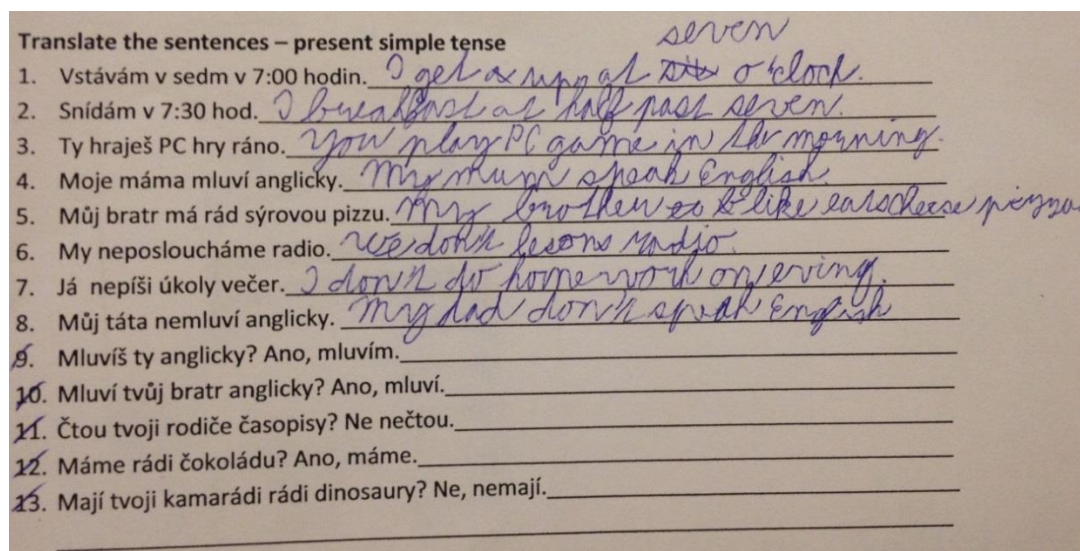 seven
Translate the sentences – present simple tense
1. Vstávám v sedm v 7:00 hodin. I get up at o'clock.
2. Snídám v 7:30 hod. I breakfast at half past seven.
3. Ty hraješ PC hry ráno. You play PC game in the morning.
4. Moje máma mluví anglicky. My mum speak English.
5. Můj bratr má rád sýrovou pizzu. My brother like eats cheese pizza
6. My neposloucháme radio. We don't lesons radio.
7. Já nepíši úkoly večer. I don't do homework on evving.
8. Můj táta nemluví anglicky. My dad don't speak English
9. Mluvíš ty anglicky? Ano, mluvím.
10. Mluví tvůj bratr anglicky? Ano, mluví.
11. Čtou tvoji rodiče časopisy? Ne nečtou.
12. Máme rádi čokoládu? Ano, máme.
13. Mají tvoji kamarádi rádi dinosaury? Ne, nemají.